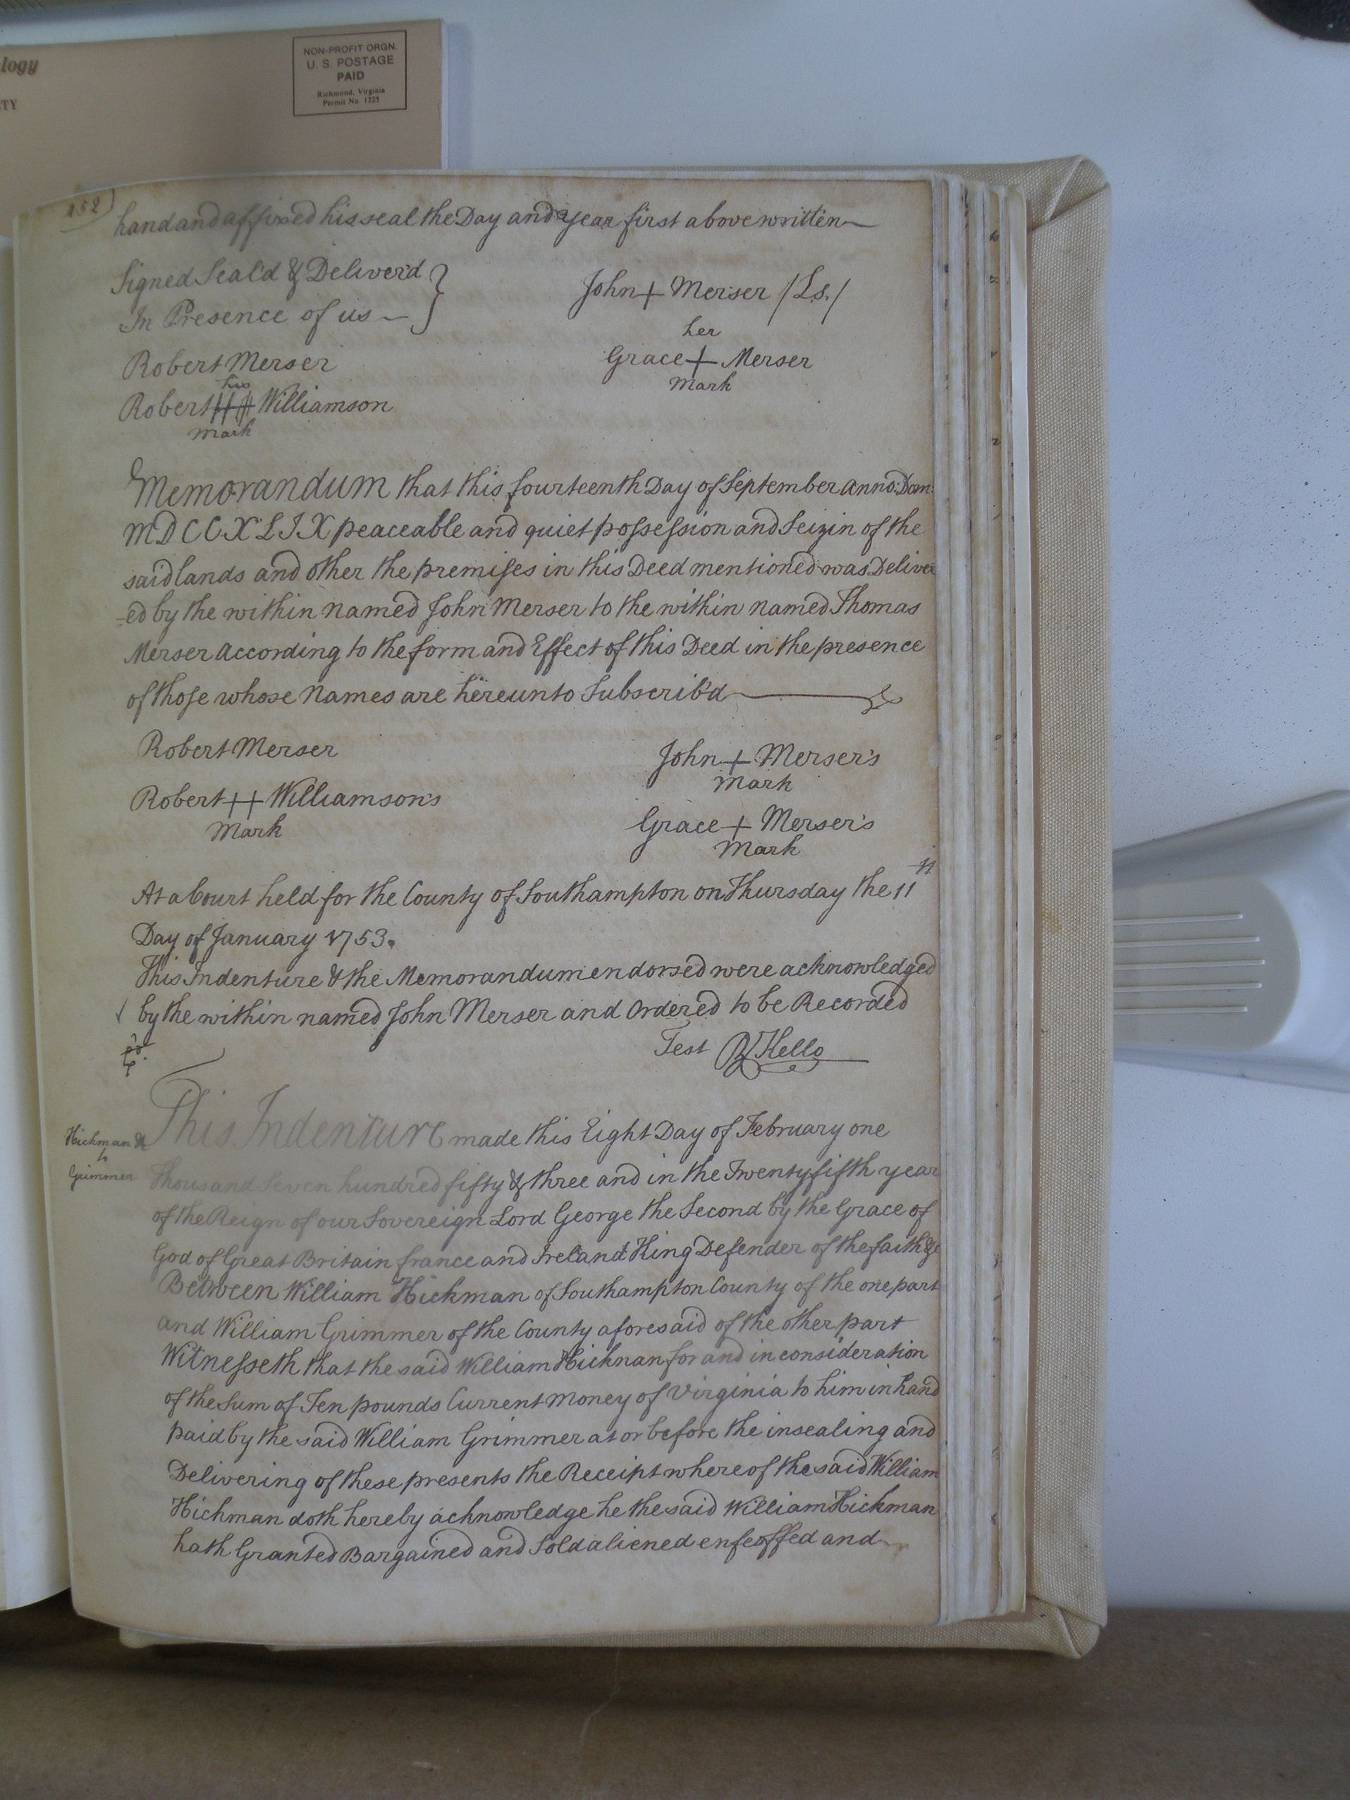 logy
TY
NON-PROFIT ORGN.
U. S. POSTAGE
PAID
Richmond, Virginia
Permit No. 1225
152)
hand and affixed his seal the Day and year first above written
Signed Seal'd & Deliver'd } John + Merser /Ls./
In Presence of us
her
Robert Merser Grace + Merser
mark
his
Robert Williamson
mark
Memorandum that this fourteenth Day of September anno: Dom
MDCCXLIX peaceable and quiet possession and Seizin of the
said lands and other the premises in this Deed mentioned was Deliver
=ed by the within named John Merser to the within named Thomas
Merser According to the form and Effect of this Deed in the presence
of those whose Names are hereunto Subscrib'd
Robert Merser John + Merser's
Mark
Robert ++ Williamson's
Mark Grace + Merser's
Mark
At a Court held for the County of Southampton on Thursday the 11th
Day of January 1753.
This Indenture & the Memorandum endorsed were acknowledged
by the within named John Merser and Ordered to be Recorded
Test R Kello
This Indenture made this Eight Day of February one
Hickman
to
Grimmer
Thousand Seven hundred fifty & three and in the Twenty fifth year
of the Reign of our Sovereign Lord George the Second by the Grace of
God of Great Britain france and Ireland King Defender of the faith &c
Between William Hickman of Southampton County of the one part
and William Grimmer of the County aforesaid of the other part
Witnesseth that the said William Hickman for and in consideration
of the Sum of Ten pounds Current Money of Virginia to him in hand
paid by the said William Grimmer at or before the insealing and
Delivering of these presents the Receipt whereof the said William
Hickman doth hereby acknowledge he the said William Hickman
hath Granted Bargained and Sold aliened enfeoffed and